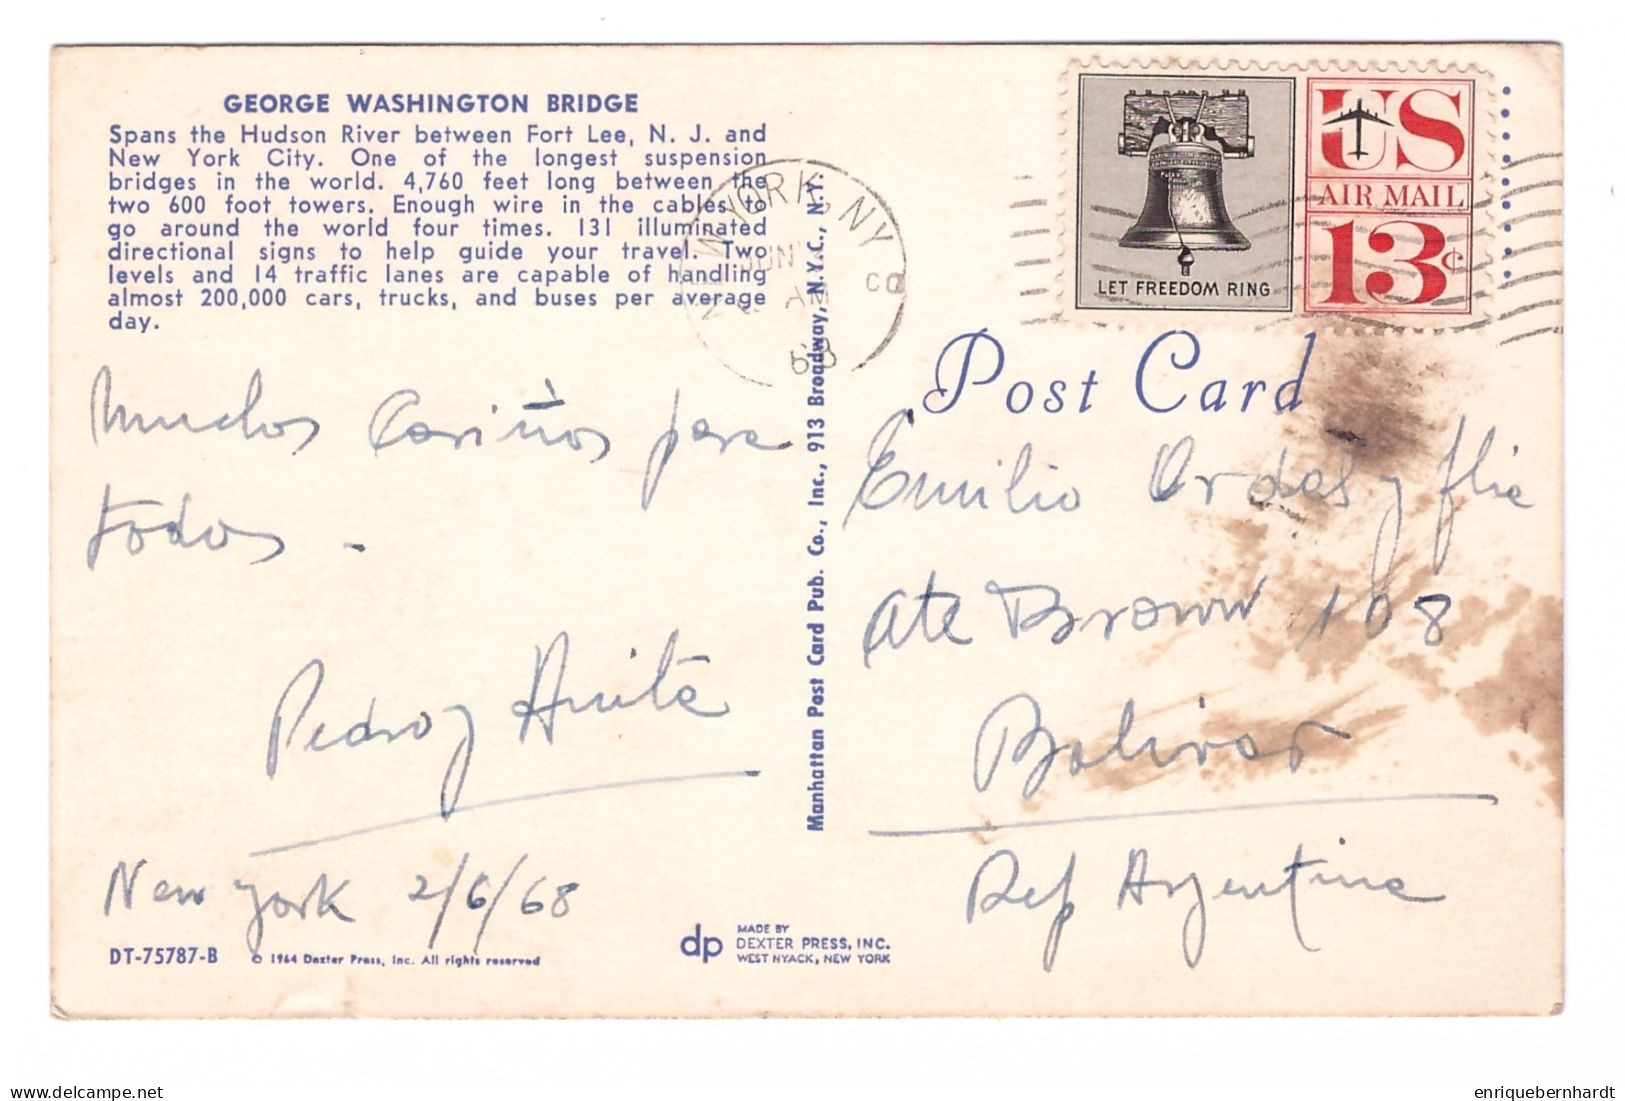 GEORGE WASHINGTON BRIDGE
Spans the Hudson River between Fort Lee, N. J. and
New York City. One of the longest suspension
bridges in the world. 4,760 feet long between the
two 600 foot towers. Enough wire in the cables to
go around the world four times. 131 illuminated
directional signs to help guide your travel. Two
levels and 14 traffic lanes are capable of handling
almost 200,000 cars, trucks, and buses per average
day.
Muchos Cariños para
todos -
Pedro y Anita
New York 2/6/68
DT-75787-B © 1964 Dexter Press, Inc. All rights reserved
dp MADE BY
DEXTER PRESS, INC.
WEST NYACK, NEW YORK
Manhattan Post Card Pub. Co., Inc., 913 Broadway, N.Y.C., N.Y.
NEW YORK, NY
JUN
AM
68
LET FREEDOM RING
US
AIR MAIL
13c
Post Card
Emilio Ordas y flia
Ate Brown 108
Bolivar
Rep Argentina
enriquebernhardt